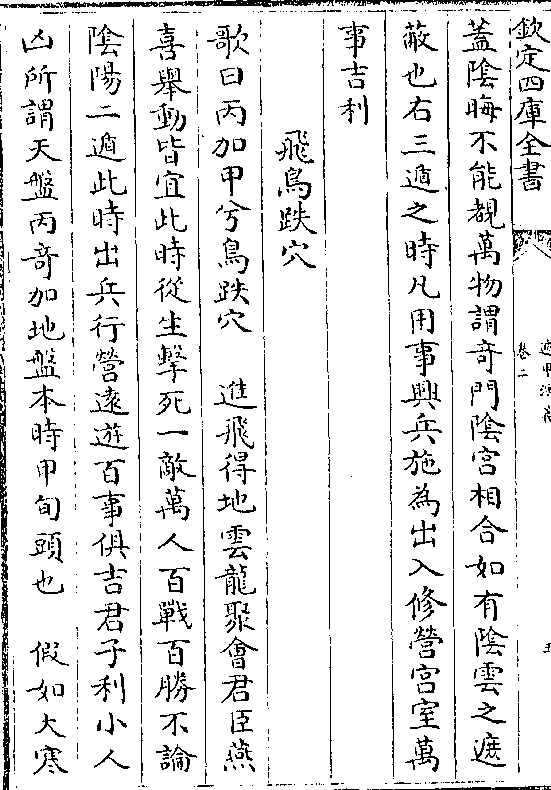 欽定四庫全書
遁甲演義
卷二
五
蓋陰晦不能覩萬物謂奇門陰宮相合如有陰雲之遮
蔽也右三遁之時凡用事興兵施為出入修營宮室萬
事吉利
飛鳥跌穴
歌曰丙加甲兮鳥跌穴 進飛得地雲龍聚會君臣燕
喜舉動皆宜此時從生擊死一敵萬人百戰百勝不論
陰陽二遁此時出兵行營遠遊百事俱吉君子利小人
凶所謂天盤丙奇加地盤本時甲旬頭也 假如大寒